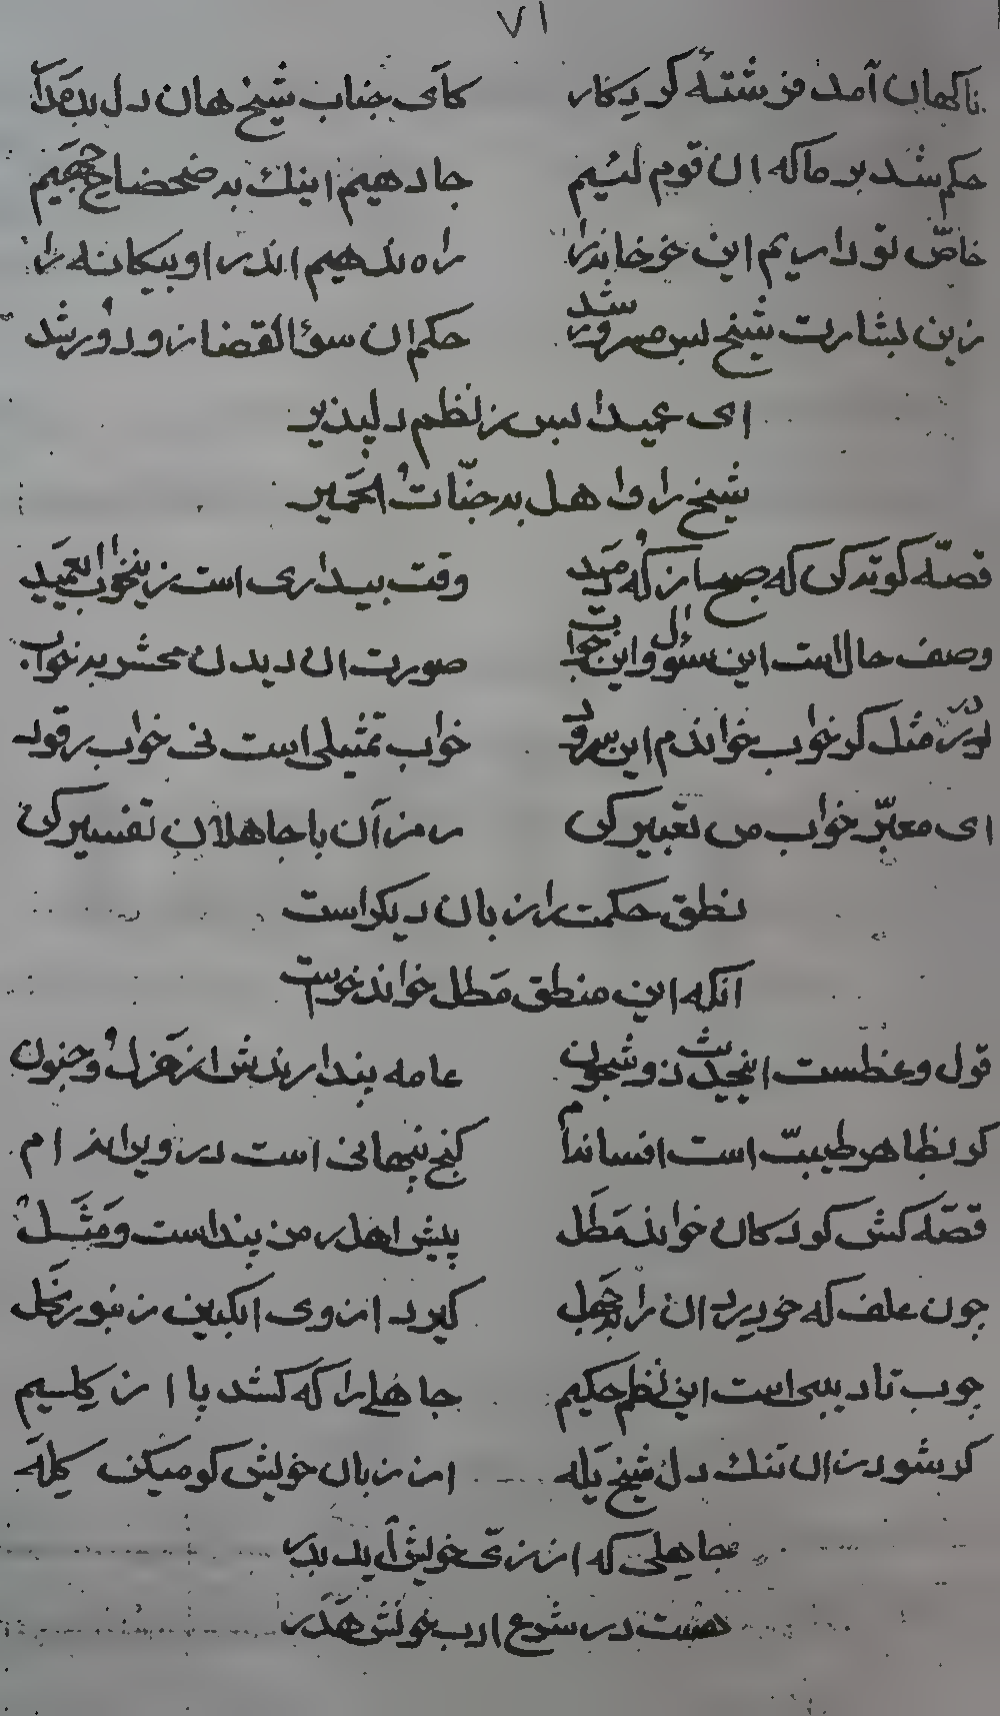 ۷۱
ناکهان آمد فرشتهٔ کردکار کای جناب شیخ هان دل بد مدار
حکم شد بر ما که ان قوم لئیم جا دهیم اینك به ضحضاح جهیم
خاصّ تو داریم این خوخانه را راه ندهیم اندر او بیکانه را
زین بشارت شیخ بس مسرور شد حکم ان سوٴ القضا زو دور شد
ای عمید ا بس ز نظم دلپذیر
شیخ را وا هل به جنّات الحمیر
قصّه کوته کن که صبح از که دمید وقت بیداری است زین خواب العمید
وصف حال است این سئوال و این جواب صورت ان دیدن محشر به خواب
در مثل کر خواب خواندم این سرود خواب تمثیلی است نی خواب رقود
ای معبّر خواب من تعبیر کن رمز آن با جاهلان تفسیر کن
نطق حکمت را زبان دیکر است
آنکه این منطق مَطَل خواند خر است
قول وعظست اینحدیث ذو شجون عامه پندارندش از هَزل و جنون
کر بظاهر طیبت است افسانه ام کنج پنهانی است در ویرانه ام
قصّه کش کودکان خواند مَطَل پیش اهل رمز پند است و مَثَل
چون علف که خود برد ان را جَمَل کیرد از وی انکبین زنبور نَحل
چوب تادیبی است این نظم حکیم جاهلے را که کشد پا از کلیم
کر شود زان تنك دل شیخ یَله از زبان خویش کو میکن کِلَه
جاهلی که از زیّ خویش آید بدر
هست در شرع ادب خونش هَدَر